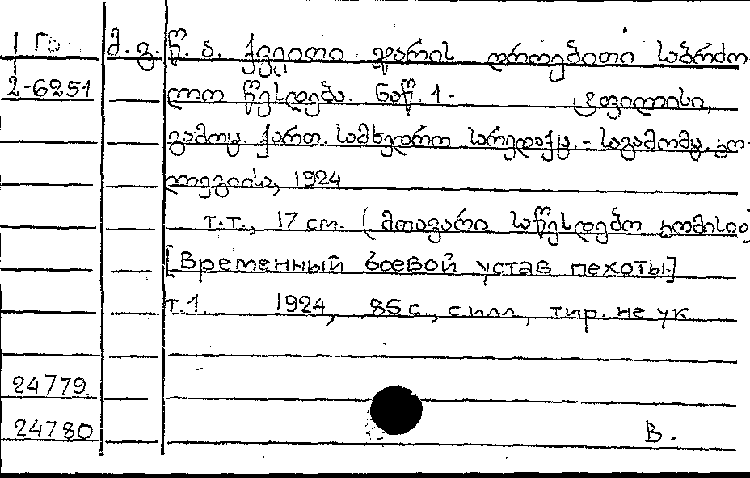 1 Го მ.გ. წ.ა. ქვეითი ჯარის დროებითი საბრძო-
2-6251 ლო წესდება. ნაწ. 1- ტფილისი,
გამოც. ქართ. სამხედრო სარედაქც.-საგამომც. კო-
ლეგიისა, 1924
т.т., 17 cm. (მთავარი საწესდებო კომისია)
[Временный боевой устав пехоты]
т.1. 1924, 85 с., с илл., тир. не ук
24779
24780 В.